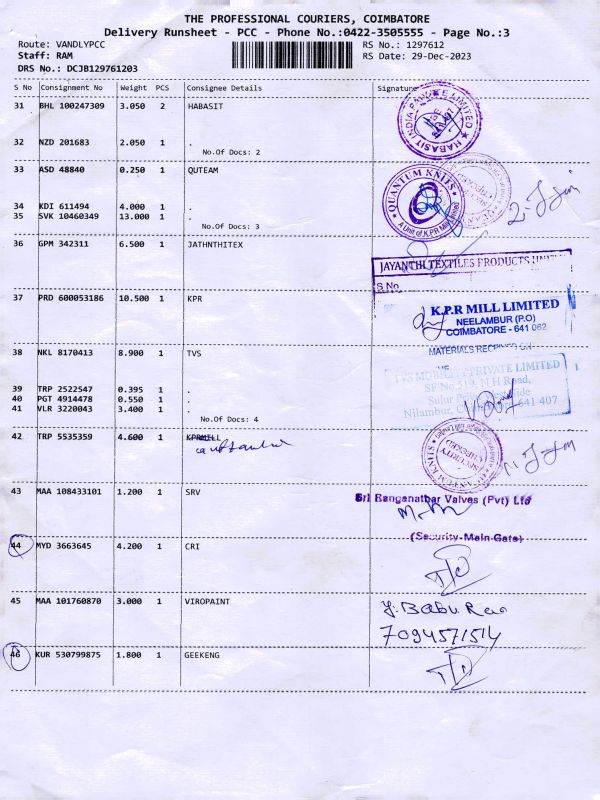 THE PROFESSIONAL COURIERS, COIMBATORE
Delivery Runsheet - PCC - Phone No.:0422-3505555 - Page No.:3
Route: VANDLYPCC RS No.: 1297612
Staff: RAM RS Date: 29-Dec-2023
DRS No.: DCJB129761203
S No Consignment No Weight PCS Consignee Details Signature
31 BHL 100247309 3.050 2 HABASIT
HABASIT INDIA LIMITED
32 NZD 201683 2.050 1 .
No.Of Docs: 2
33 ASD 48840 0.250 1 QUTEAM
QUANTUM KNITS
A Unit of K.P.R Mill Limited
34 KDI 611494 4.000 1 .
35 SVK 10460349 13.000 1 .
No.Of Docs: 3
36 GPM 342311 6.500 1 JATHNTHITEX
JAYANTHI TEXTILES PRODUCTS
S.No
37 PRD 600053186 10.500 1 KPR
K.P.R MILL LIMITED
NEELAMBUR (P.O)
COIMBATORE - 641 062
MATERIALS RECEIVED ON
38 NKL 8170413 8.900 1 TVS
TVS MOBILITY PRIVATE LIMITED
SF No 519, N H Road,
Sulur
Nilambur, 641 407
39 TRP 2522547 0.395 1 .
40 PGT 4914478 0.550 1 .
41 VLR 3220043 3.400 1 .
No.Of Docs: 4
42 TRP 5535359 4.600 1 KPRMILL
QUANTUM KNITS
SECURITY
CHECKED
43 MAA 108433101 1.200 1 SRV
Sri Ranganathar Valves (Pvt) Ltd
(Security-Main Gate)
44 MYD 3663645 4.200 1 CRI
45 MAA 101760870 3.000 1 VIROPAINT
Y. Babu Rao
7094571514
46 KUR 530799875 1.800 1 GEEKENG